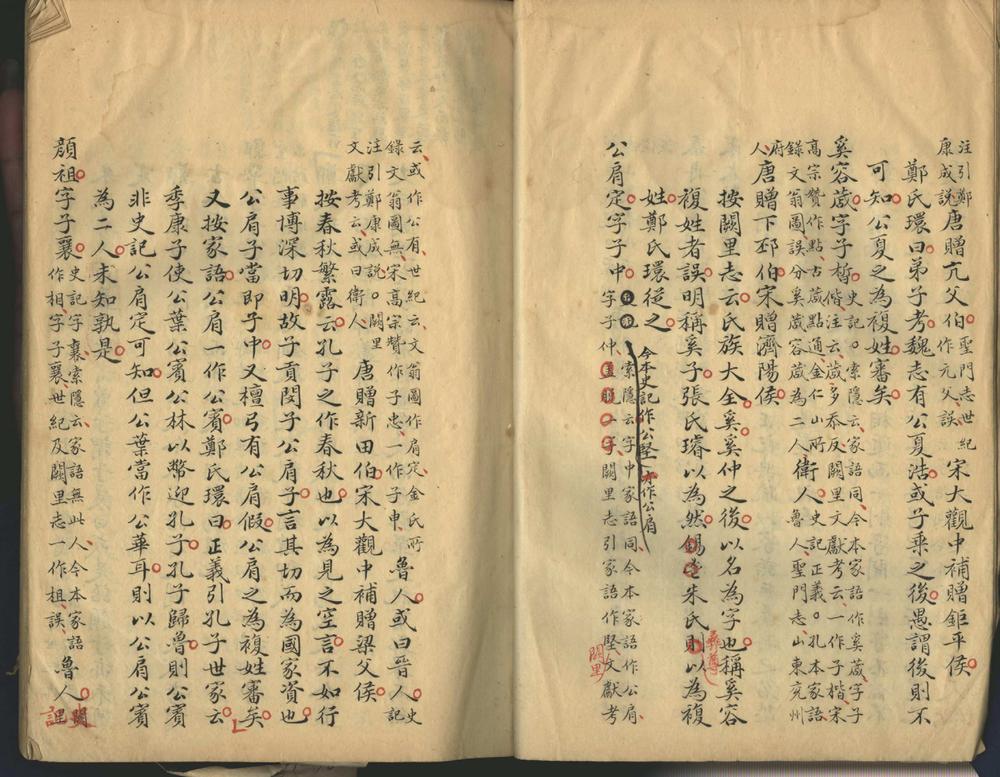 注引鄭
康成說唐贈亢父伯聖門志世紀
作元父誤宋大觀中補贈鉅平侯
鄭氏環曰弟子考魏志有公夏浩或子乘之後愚謂後則不
可知公夏之為複姓審矣
奚容蒧字子皙史記。索隱云家語同今本家語作奚蒧字子
偕注云蒧多忝反闕里文獻考云一作子楷宋
高宗贊作點古蒧點通金仁山所
錄文翁圖誤分奚蒧容蒧為二人衛人史記正義。孔本家語
魯人聖門志山東兗州
府
人唐贈下邳伯宋贈濟陽侯
按闕里志云氏族大全奚奚仲之後以名為字也稱奚容
複姓者誤明稱奚子張氏璿以為然朱氏則以為複
彝尊
姓鄭氏環從之
今本史記作公堅亦作公肩
公肩定字子中索隱云字中家語同今本家語作公肩
字子仲闕里志引家語作堅文獻考
闕里
云或作公有世紀云文翁圖作肩定金氏所
錄文翁圖無宋高宗贊作子忠一作子申魯人或曰晉人史記
注引鄭康成說。闕里
文獻考云或曰衛人唐贈新田伯宋大觀中補贈梁父侯
按春秋繁露云孔子之作春秋也以為見之空言不如行
事博深切明故子貢閔子公肩子言其切而為國家資也
公肩子當即子中又檀弓有公肩假公肩之為複姓審矣
又按家語公肩一作公賓鄭氏環曰正義引孔子世家云
季康子使公葉公賓公林以幣迎孔子孔子歸魯則公賓
非史記公肩定可知但公葉當作公華耳則以公肩公賓
為二人未知孰是
顏祖字子襄史記字襄索隱云家語無此人今本家語
作相字子襄世紀及闕里志一作祖誤魯人闕里